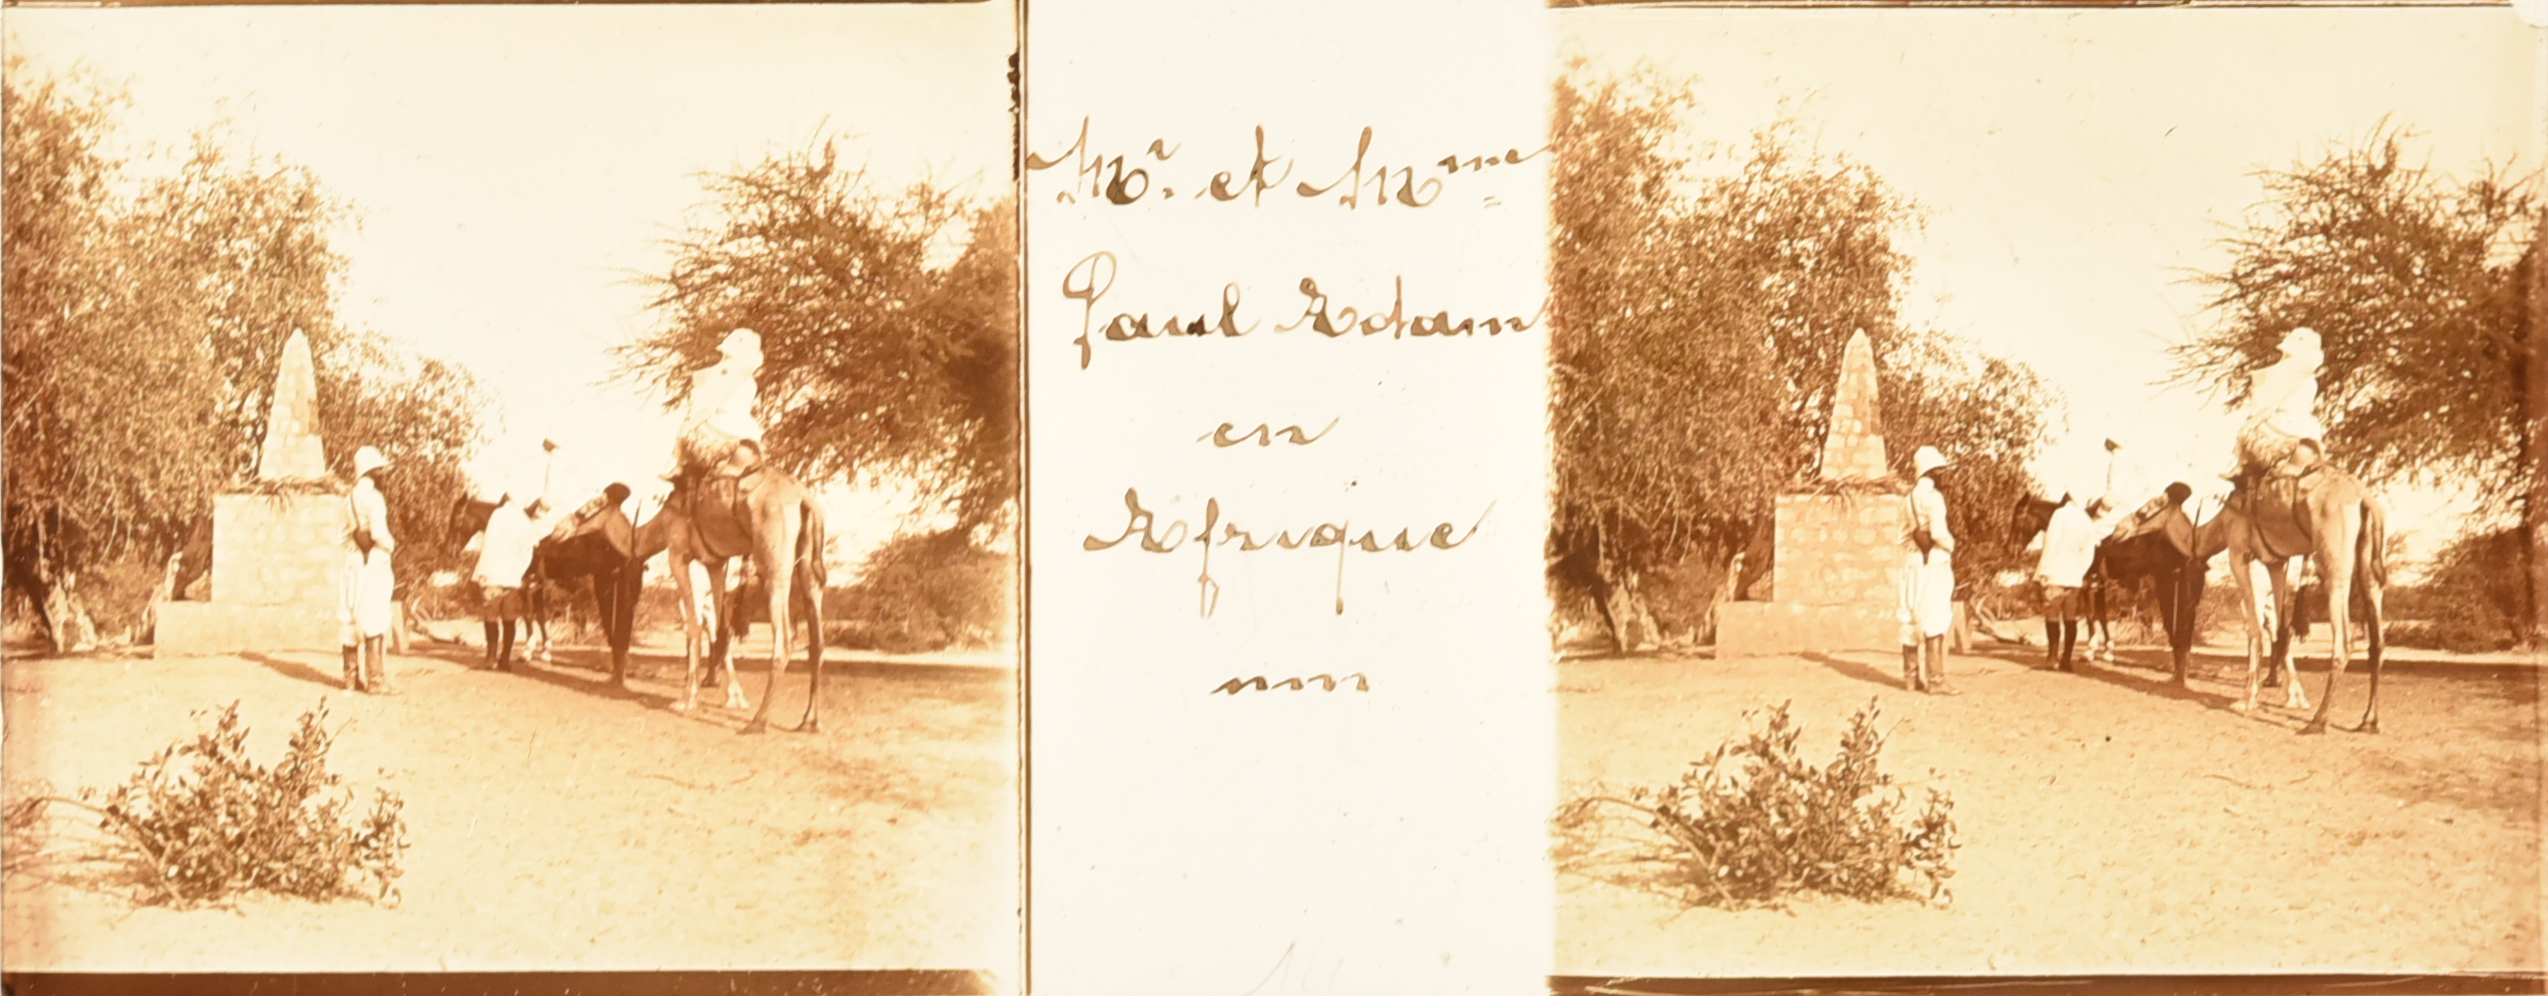 Mr. et Mme
Paul Adam
en
Afrique